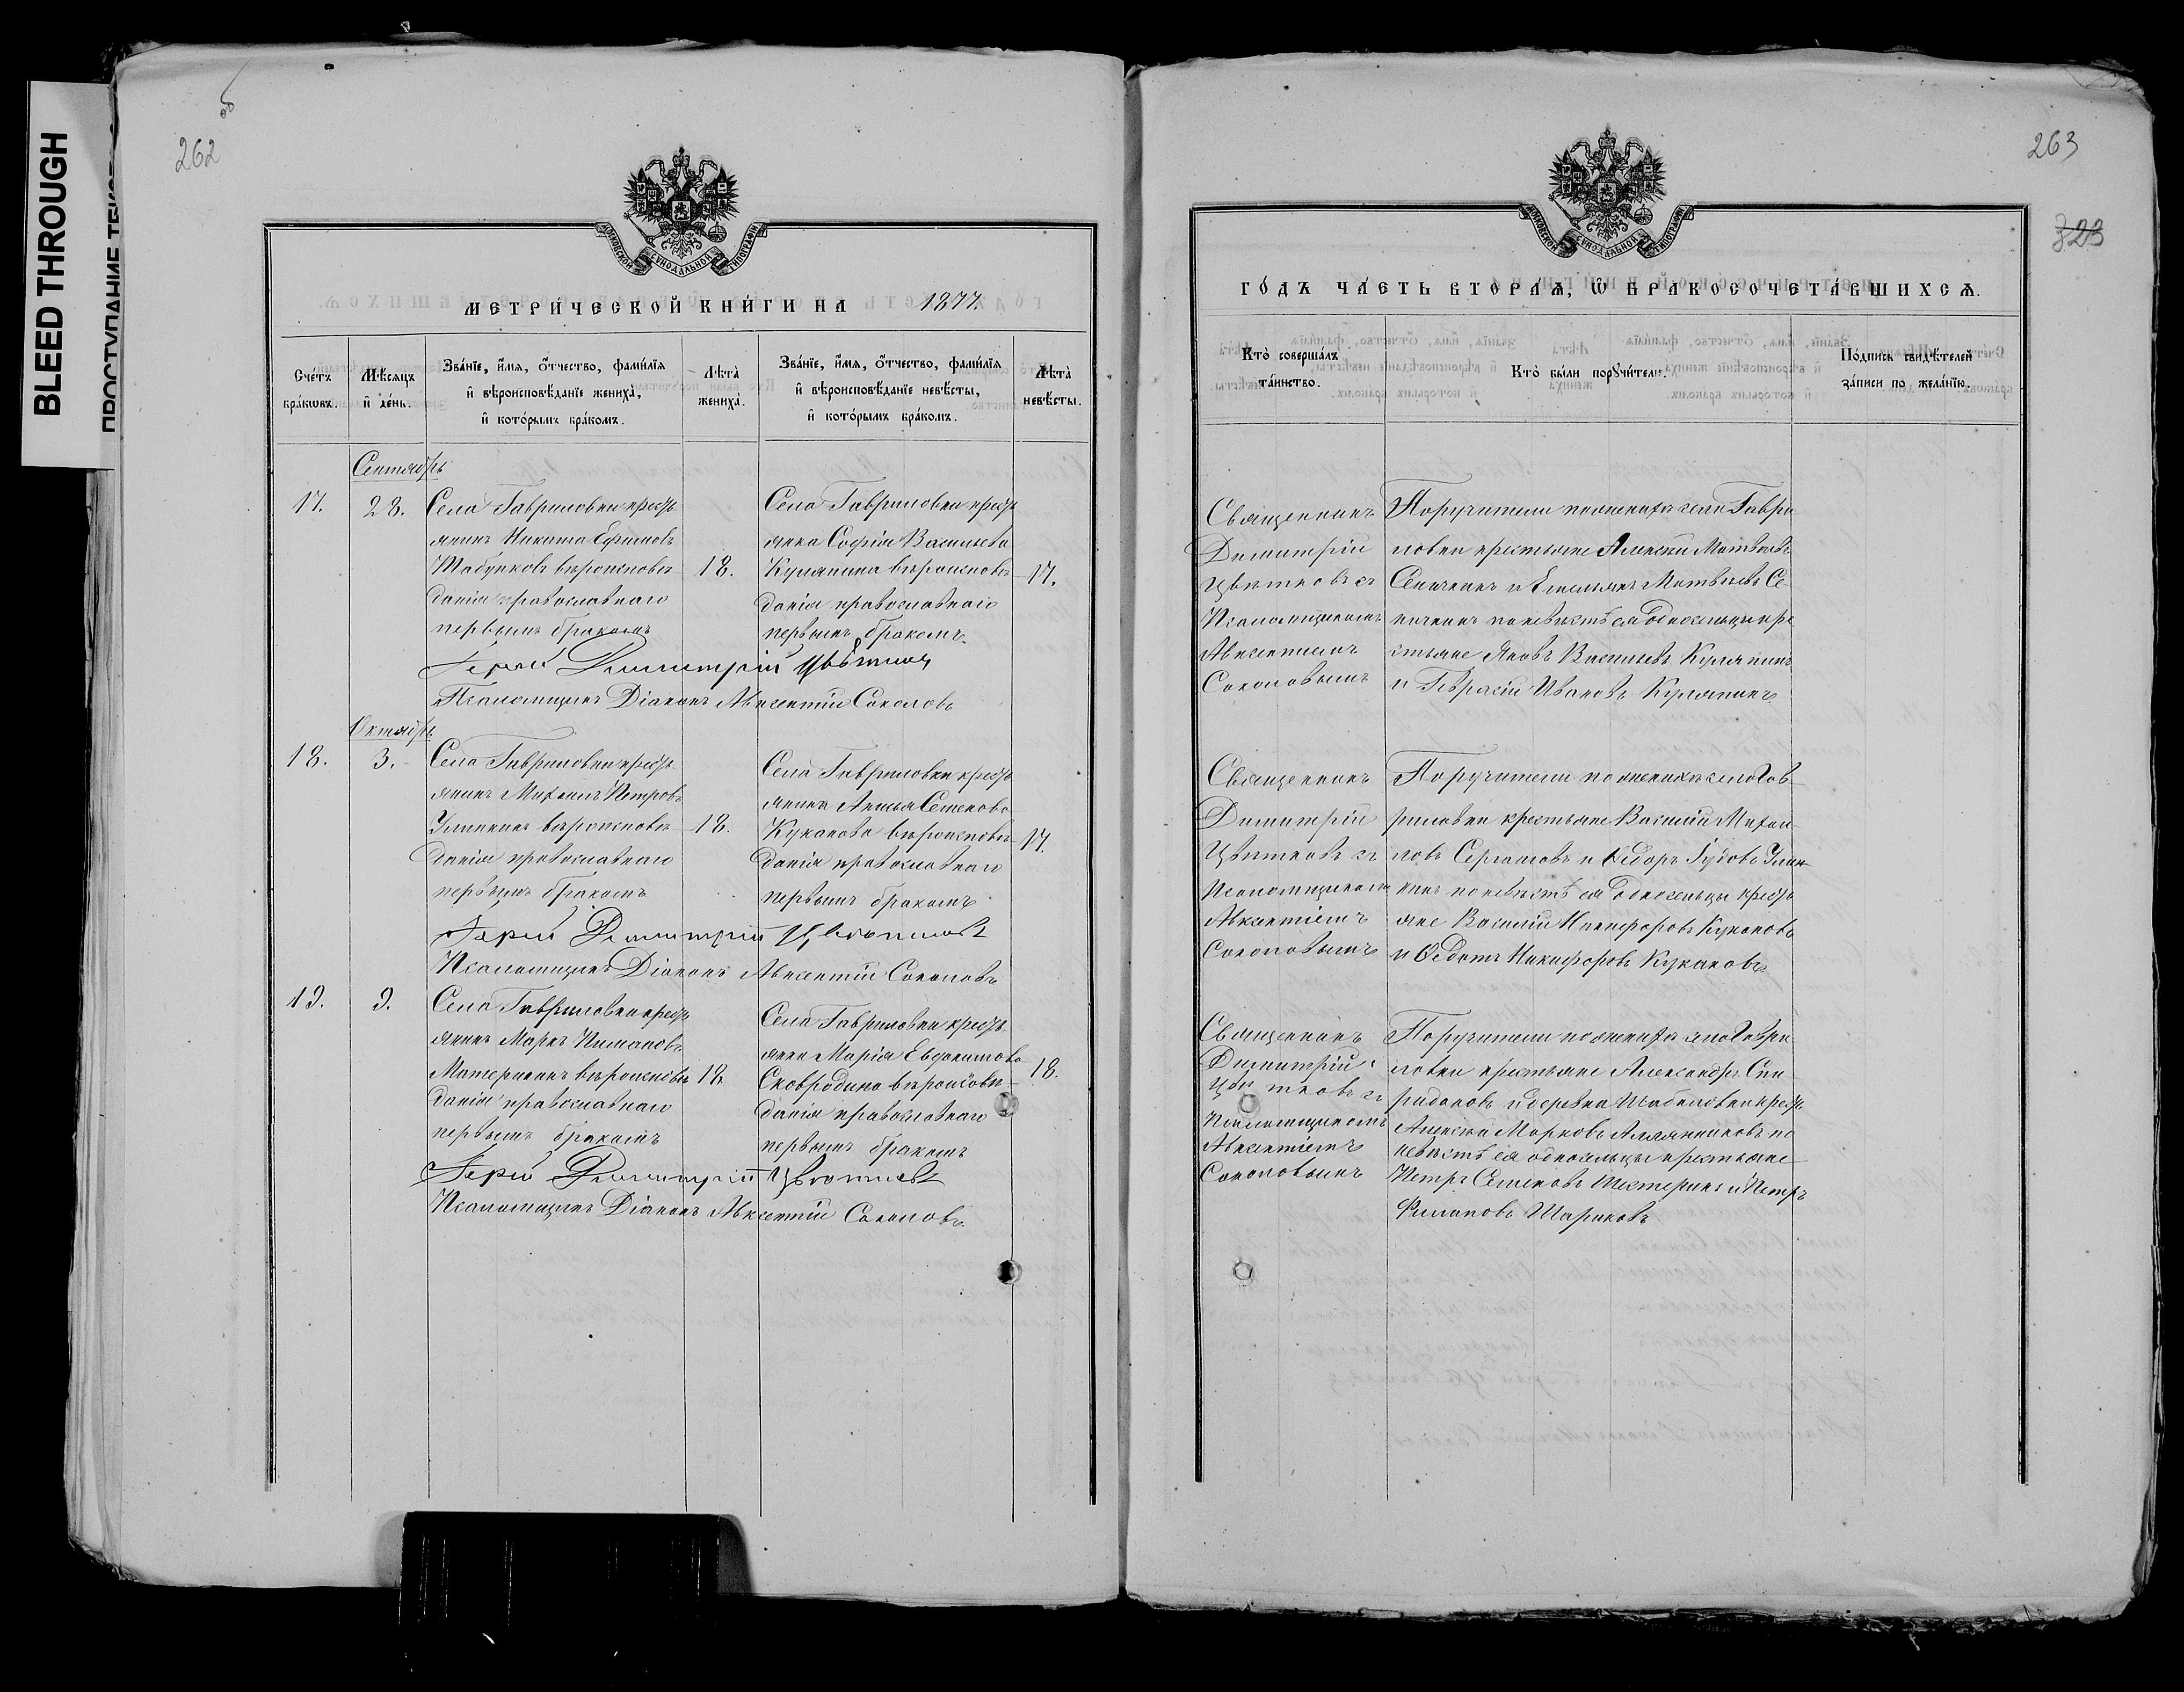 BLEED THROUGH
262
МОСКОВСКОЙ СѴНОДАЛЬНОЙ ТИПОГРАФІИ
МЕТРИ́ЧЕСКОЙ КНИ́ГИ НА 1877.
Сче́тъ бра́кѡвъ.
Мѣ́сяцъ и҆ де́нь.
Зва́нїе, и҆́мѧ, ѻ҆́тчество, фами́лїѧ
и҆ вѣроисповѣ́данїе жениха̀,
и҆ кото́рымъ бра́комъ.
Лѣта̀ жениха̀.
Зва́нїе, и҆́мѧ, ѻ҆́тчество, фами́лїѧ
и҆ вѣроисповѣ́данїе невѣ́сты,
и҆ кото́рымъ бра́комъ.
Лѣта̀ невѣ́сты.
Сентябрь
17.
28.
Села Гавриловки кресть
янинъ Никита Ефимовъ
Табунковъ вѣроисповѣ
данія православнаго
первымъ бракомъ
18.
Села Гавриловки кресть
янка Софія Васильева
Куляпина вѣроисповѣ
данія православнаго
первымъ бракомъ.
17.
Іерей Димитрій Цвѣтков
Псаломщикъ Діаконъ Авксентій Соколовъ
Октябрь
18.
3.
Села Гавриловки кресть
янинъ Михаилъ Петровъ
вѣроисповѣ
данія православнаго
первымъ бракомъ
18.
Села Гавриловки кресть
янка Анисья Семенова
Куканова вѣроисповѣ
данія православнаго
первымъ бракомъ
17.
Іерей Димитрій Цвѣтков
Псаломщикъ Діаконъ Авксентій Соколовъ
19.
9.
Села Гавриловки кресть
янинъ Маркъ Пимановъ
Материкинъ вѣроисповѣ
данія православнаго
первымъ бракомъ
18.
Села Гавриловки кресть
янка Марія Евдокимова
Сковродина вѣроисповѣ
данія православнаго
первымъ бракомъ
18.
Іерей Димитрій Цвѣтков
Псаломщикъ Діаконъ Авксентій Соколовъ
263
323
МОСКОВСКОЙ СѴНОДАЛЬНОЙ ТИПОГРАФІИ
ГО́ДЪ ЧА́СТЬ ВТОРА́Ѧ, Ѡ҆ БРАКОСОЧЕТА́ВШИХСѦ.
Кто̀ соверша́лъ
та́инство.
Кто̀ бы́ли порꙋчи́тели.
По́дпись свидѣ́телей
за́писи по жела́нїю.
Священникъ
Димитрій
Цвѣтковъ съ
Псаломщикомъ
Авксентіемъ
Соколовымъ
Поручители по женихѣ села Гаври
ловки крестьяне Алексѣй Матвѣевъ
Сеничкинъ и Емельянъ Матвѣевъ Се-
ничкинъ по невѣстѣ ея односельцы кре
стьяне Яковъ Васильевъ Куляпинъ
и Герасій Ивановъ Куляпинъ
Священникъ
Димитрій
Цвѣтковъ съ
Псаломщикомъ
Авксентіемъ
Соколовымъ
Поручители по женихѣ села Гав
риловки крестьяне Василій Михаи
ловъ и Ѳедоръ
по невѣстѣ ея односельцы кресть
яне Василій Никифоровъ Кукановъ
и Ѳедотъ Никифоровъ Кукановъ
Священникъ
Димитрій
Цвѣтковъ съ
Псаломщикомъ
Авксентіемъ
Соколовымъ
Поручители по женихѣ села Гаври
ловки крестьяне Александръ Спи
ридоновъ и деревни Шабаловки кресть
Алексѣй Марковъ по
невѣстѣ ея односельцы крестьяне
Петръ Семеновъ Шестеринъ и Петръ
Филиповъ Шариковъ